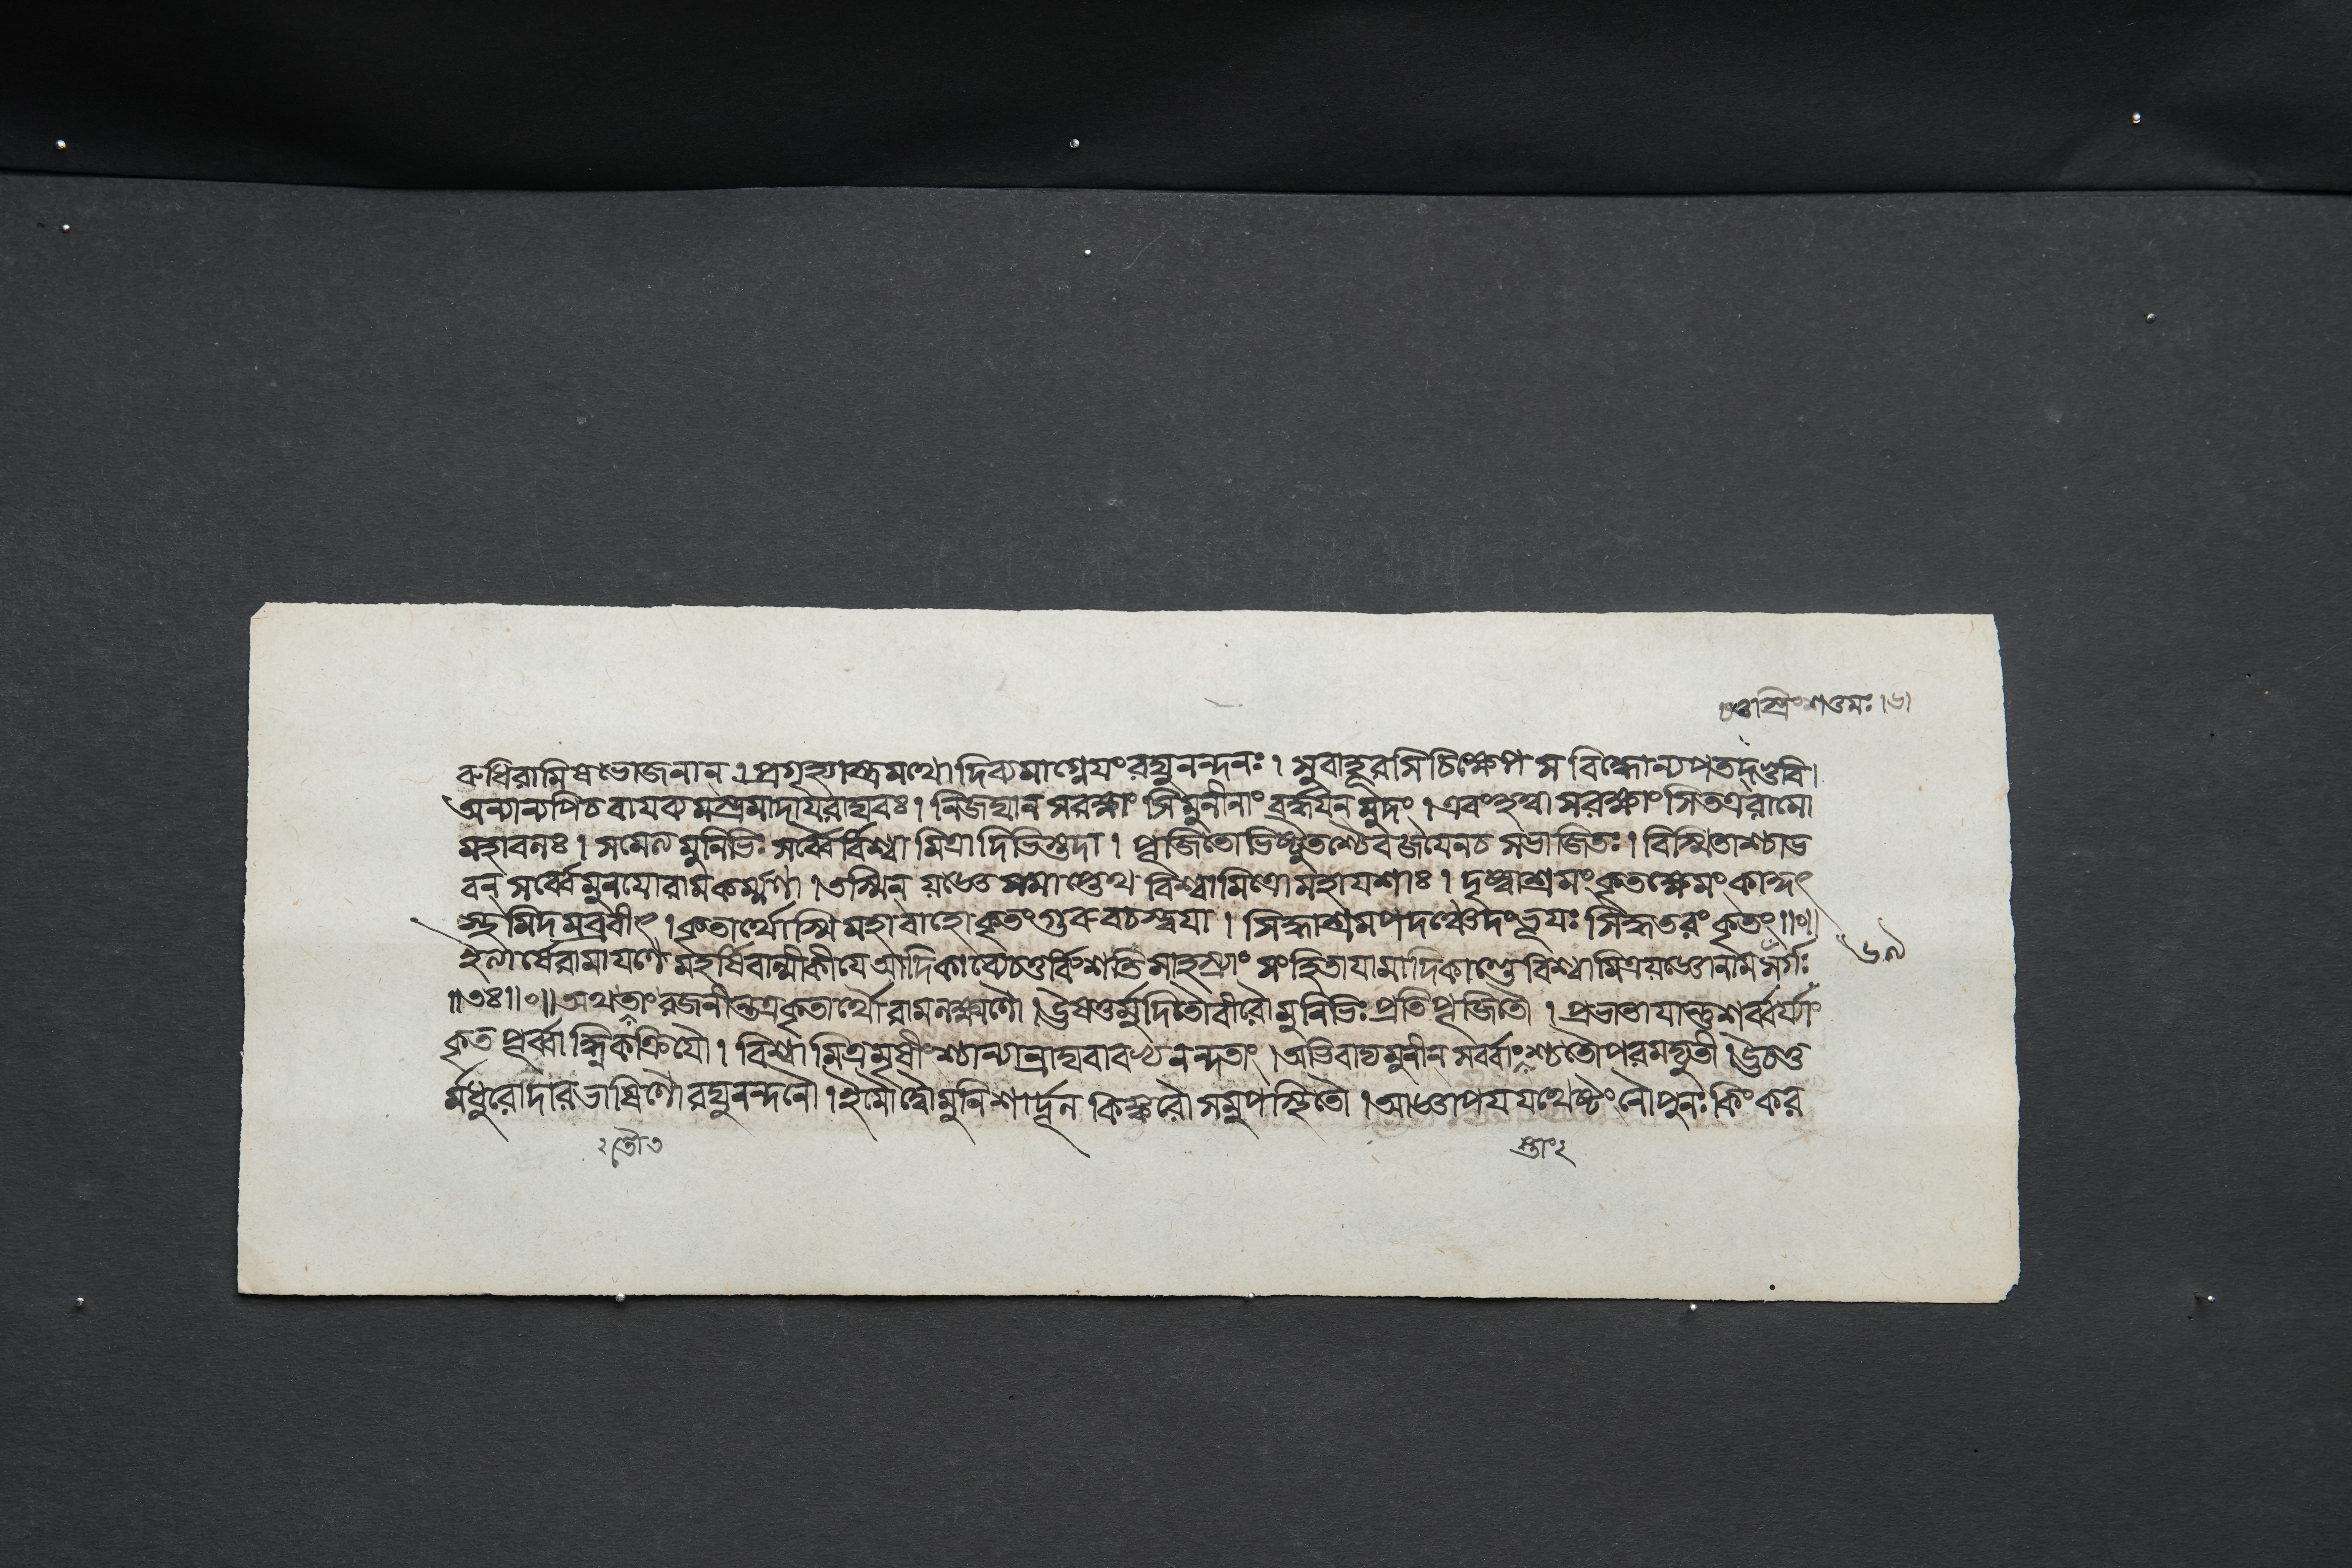 চতুস্ত্রিংশত্তমঃ।৬।
রুধিরামিষভোজনান্।প্রগৃহ্যাস্ত্রমথো দিব্যমাগ্নেয়ংরঘুনন্দনঃ। সুবাহূরসি চিক্ষেপ স বিদ্ধোন্যপতদ্ভুবি।
অন্যান্যপিচ বায়ব্যমস্ত্রমাদায়রাঘবঃ। নিজঘান সরক্ষাংসি মুনীনাং বর্দ্ধয়ন্ মুদং।এবংহত্বা সরক্ষাংসিতত্ররামো
মহাবলঃ। সমেত্য মুনিভিঃ সর্ব্বৈর্বিশ্বামিত্রাদিভিস্তদা। পূজিতোভিষ্টুতশ্চৈবজয়েনচ সভাজিতঃ। বিস্মিতাশ্চাভ
বন্ সর্ব্বেমুনয়োরামকর্ম্মণা।তস্মিন্ যজ্ঞেসমাপ্তেথ বিশ্বামিত্রোমহাযশাঃ। দৃষ্ট্বাশ্রমংকৃতক্ষেমংকাকুৎ
স্থমিদমব্রবীৎ।কৃতার্থোস্মি মহাবাহো কৃতংগুরুবচস্ত্বয়া। সিদ্ধাশ্রমপদঞ্চেদংভূয়ঃ সিদ্ধতরংকৃতং॥০॥
ইত্যার্ষেরামায়ণে মহর্ষিবাল্মীকীয়েআদিকাব্যেচতুর্বিংশতিসাহস্র্যাং সংহিতায়ামাদিকাণ্ডেবিশ্বামিত্রযজ্ঞোনাম সর্গঃ
॥৩৪॥০॥অথতাং রজনীন্তত্রকৃতার্থৌ রামলক্ষ্মণৌ।ঊষতুর্মুদিতৌবীরৌ মুনিভিঃ প্রতিপূজিতৌ। প্রভাতায়ান্তুশর্ব্বর্য্যাং
কৃত পূর্ব্বাহ্ণিকক্রিয়ৌ। বিশ্বামিত্রমৃষীংশ্চান্যান্রাঘবাবভ্যনন্দতাং।অভিবাদ্যমুনীন্ সর্ব্বাংশ্চতৌপরমদ্যুতী।ঊচতু
র্মধুরোদারভাষিণৌরঘুনন্দনৌ।ইমৌদ্বৌমুনিশার্দূল কিঙ্করৌ সমুপস্থিতৌ।আজ্ঞাপয়যথেষ্টংনৌপুনঃ কিংকর